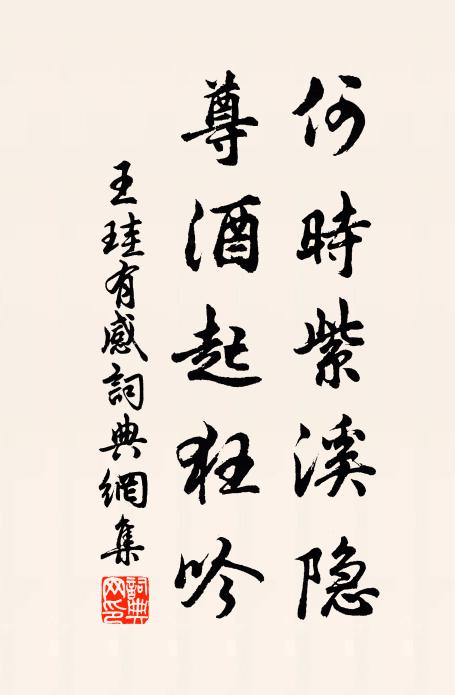 何時紫溪隐
尊酒起狂吟
王珪有感詞典網集
詞典
网印